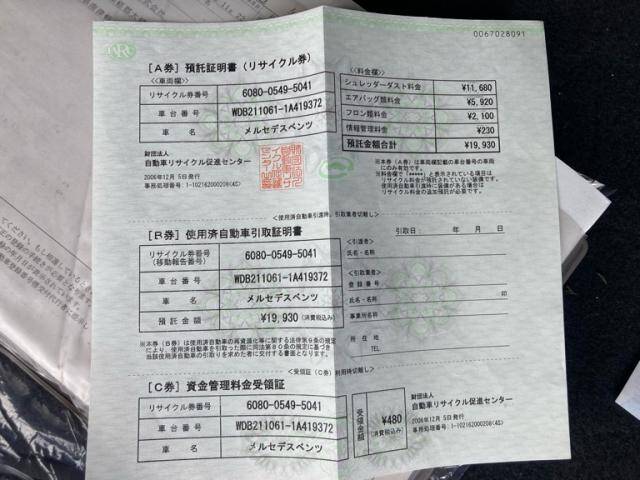 0067028091
[A券] 預託証明書 (リサイクル券)
<車両欄>
リサイクル券番号 6080-0549-5041
車台番号 WDB211061-1A419372
車名 メルセデスベンツ
財団法人
自動車リサイクル促進センター
2006年12月 5日発行
事務処理番号:1-102162000208(4S)
<料金欄>
シュレッダーダスト料金 ¥11,680
エアバッグ類料金 ¥5,920
フロン類料金 ¥2,100
情報管理料金 ¥230
預託金額合計 ¥19,930
※本券(A券)は車両欄記載の車台番号の車両
にのみ有効です。
※料金欄で「*****」と表示されている項目は
リサイクル料金が預託されていない装備です。
使用済自動車引渡時に装備がある場合は
リサイクル料金の追加預託が必要です。
<使用済自動車引渡時、引取業者切離し>
[B券] 使用済自動車引取証明書
リサイクル券番号
(移動報告番号) 6080-0549-5041
車台番号 WDB211061-1A419372
車名 メルセデスベンツ
預託金額 ¥19,930 (消費税込み)
※本券(B券)は使用済自動車の再資源化等に関する法律第9条の規定
により、使用済自動車を引取った際に同法第80条の規定に基づき
当該使用済自動車の引取りを求めた者に交付する書面となります。
引取日: 年 月 日
<引渡者>
氏名・名称
<引取業者>
登録番号
氏名・名称 印
事業所名
所在地
TEL
[C券] 資金管理料金受領証
リサイクル券番号 6080-0549-5041
車台番号 WDB211061-1A419372
車名 メルセデスベンツ
受領金額 ¥480
(消費税込み)
財団法人
自動車リサイクル促進センター
2006年12月 5日発行
事務処理番号:1-102162000208(4S)